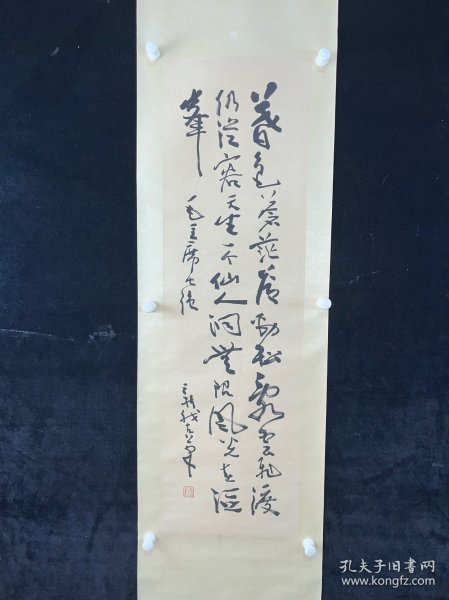 暮色苍茫看劲松乱云飞渡
仍从容天生一个仙人洞无限风光在险
峰
毛主席七绝
孔夫子旧书网
www.kongfz.com